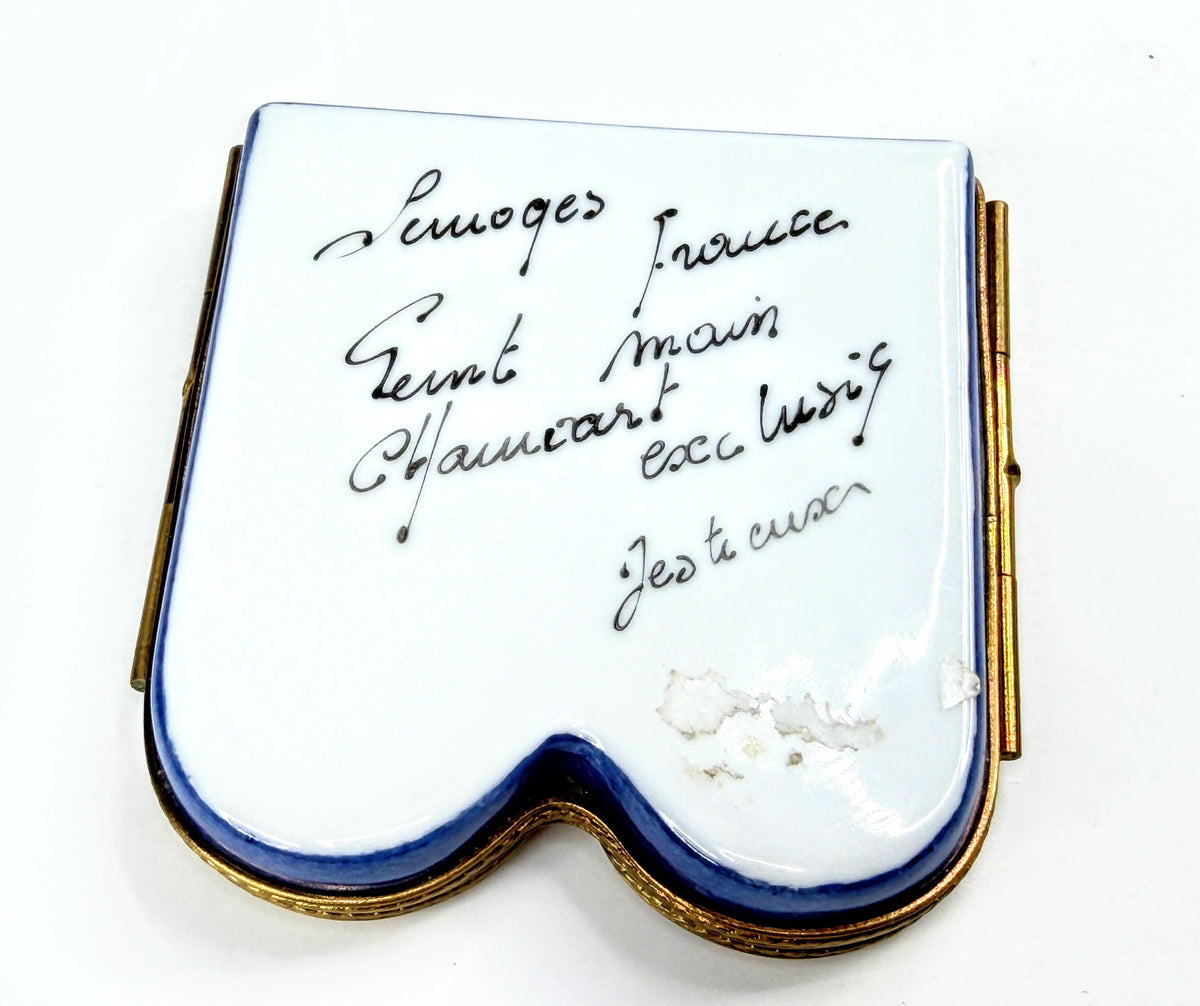 Limoges France
Peint main
Chamart exclusif